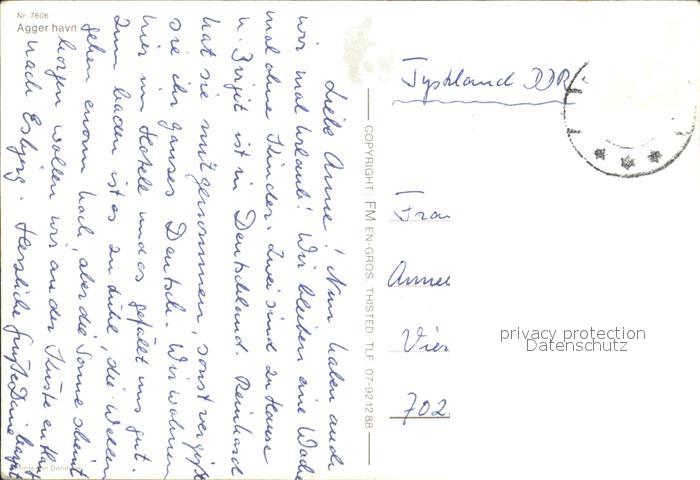 Nr. 7606
Agger havn
Liebe Anne! Nun haben auch
wir mal Urlaub! Wir bleiben eine Woche
mal ohne Kinder. Zwei sind zu Hause
u. Birgit ist in Deutschland. Reinhard
hat sie mitgenommen, sonst vergißt
sie ihr ganzes Deutsch. Wir wohnen
hier im Hotel und es gefällt uns gut.
Zum baden ist es zu kühl, die Wellen
gehen enorm hoch, aber die Sonne scheint
Morgen wollen wir an der Küste entlang
nach Esbjerg. Herzliche Grüße Deine
Printed in Denmark
COPYRIGHT: FM EN-GROS, THISTED TLF. 07-921288
Tyskland DDR
Frau
Annel
Vier
702
privacy protection
Datenschutz